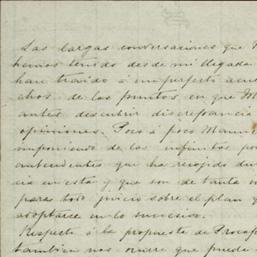 Las largas conversaciones que
hemos tenido desde mi llegada
han traido á un perfecto acuer
antes descubrir discrepancia
opiniones. Poco á poco
imponiendo de los infinitos por
antecedentes que ha recojido du
cia en esta y que son de tanta
para todo juicio sobre el plan q
adoptarse en lo sucesivo.
Respecto á la propuesta de
tambien nos ocurre que puede